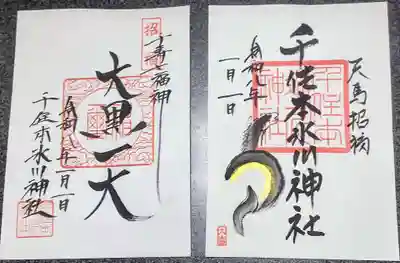 千寿七福神
大黒天
令和八年一月一日
千住本氷川神社
天馬招福
千住本氷川神社
令和八年
一月一日